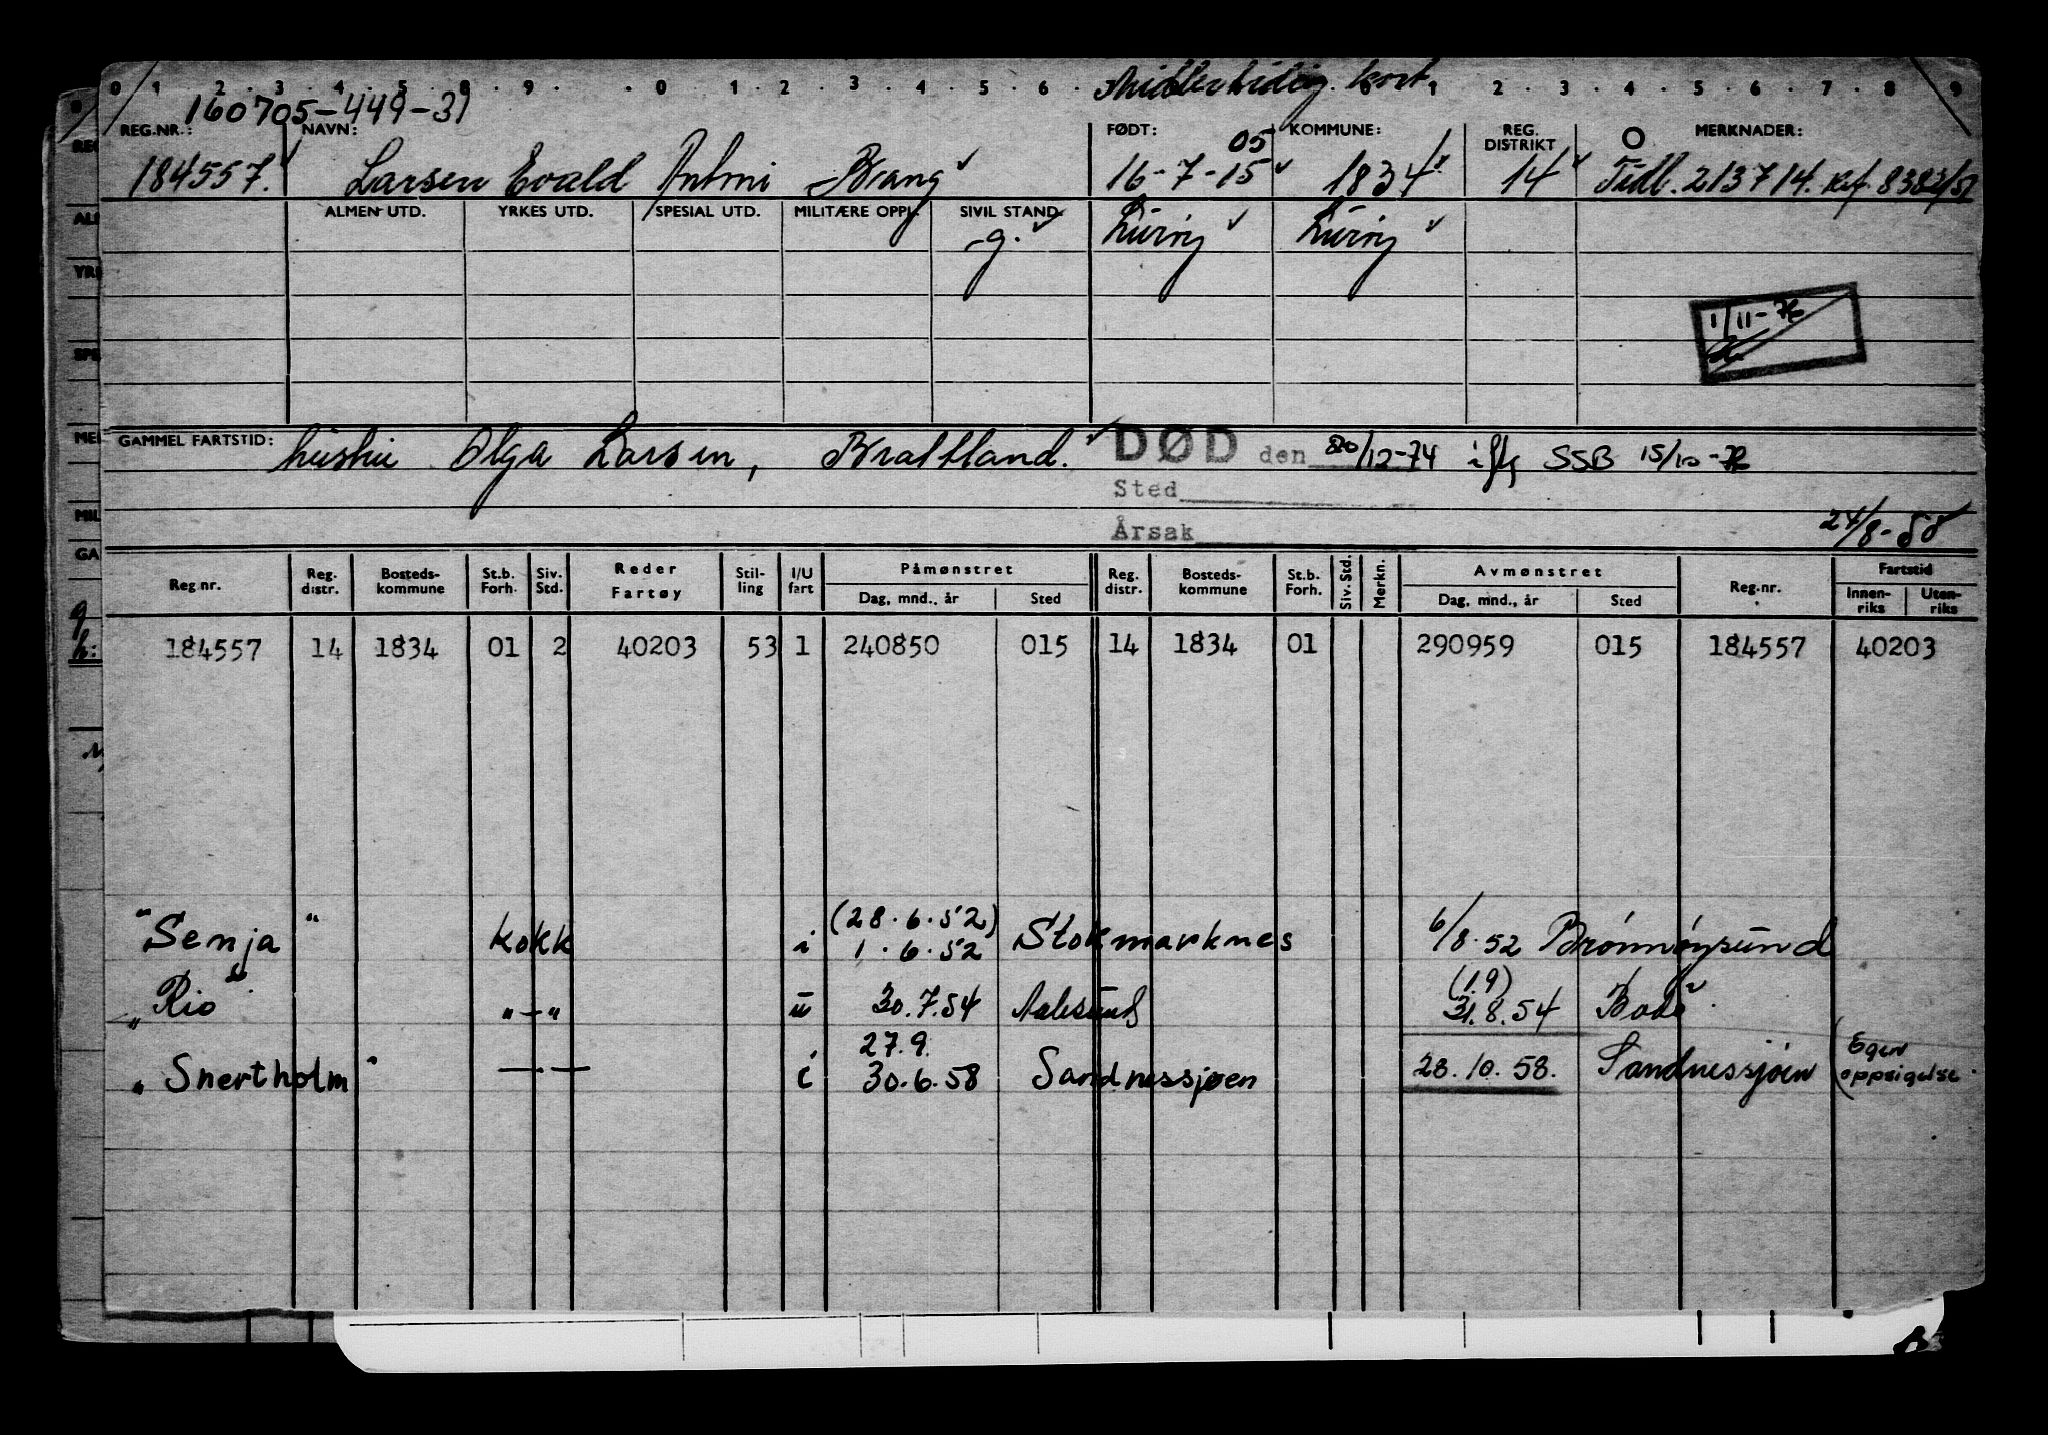 0 1 2 3 4 5 8 9 0 1 2 3 4 5 6 Midlertidig kort 1 2 3 4 5 6 7 8 9
160705-449-31
REG.NR.: NAVN: FØDT: KOMMUNE: REG. DISTRIKT MERKNADER:
05
184557. Larsen Evald Brang 16-7-15 1834 14 Tidl. 213714. Ref. 8383/51
ALMEN UTD. YRKES UTD. SPESIAL UTD. MILITÆRE OPPL. SIVIL STAND
g. Lurøy Lurøy
1/11-76
GAMMEL FARTSTID: hustru Olga Larsen, Brattland. DØD den 20/12-74 iflg SSB 15/10-76
Sted
Årsak
24/8-50
Reg.nr. Reg. distr. Bosteds-kommune St.b. Forh. Siv. Std. Reder Fartøy Stil-ling I/U fart Påmønstret Dag, mnd., år Sted Reg. distr. Bosteds-kommune St.b. Forh. Siv. Std. Merkn. Avmønstret Dag, mnd., år Sted Reg.nr. Fartstid Innen-riks Uten-riks
184557 14 1834 01 2 40203 53 1 240850 015 14 1834 01 290959 015 184557 40203
(28.6.52)
"Senja" kokk i 1.6.52 Stokmarknes 6/8.52 Brønnøysund
(19)
"Rio" " - " u 30.7.54 Aalesund 31.8.54 Bodø
27.9.
"Snertholm" — " — i 30.6.58 Sandnessjøen 28.10.58. Sandnessjøen (Egen oppsigelse